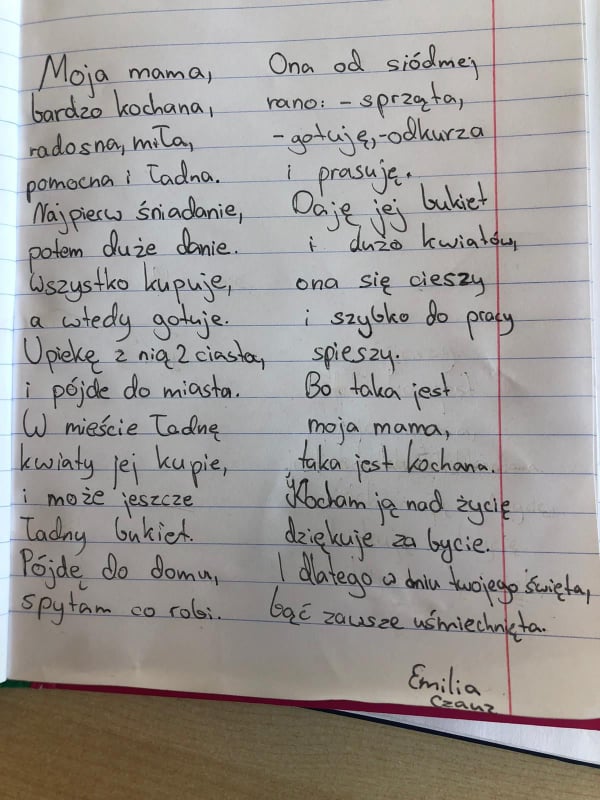 Moja mama,
bardzo kochana,
radosna, miła,
pomocna i ładna.
Najpierw śniadanie,
potem duże danie.
Wszystko kupuje,
a wtedy gotuje.
Upiekę z nią 2 ciasta,
i pójde do miasta.
W mieście ładnę
kwiaty jej kupie,
i może jeszcze
ładny bukiet.
Pójdę do domu,
spytam co robi.
Ona od siódmej
rano: - sprząta,
- gotuję, - odkurza
i prasuję.
Daję jej bukiet
i dużo kwiatów,
ona się cieszy
i szybko do pracy
spieszy.
Bo taka jest
moja mama,
taka jest kochana.
Kocham ją nad życię
dziękuje za bycie.
I dlatego w dniu twojego święta,
bąć zawsze uśmiechnięta.
Emilia